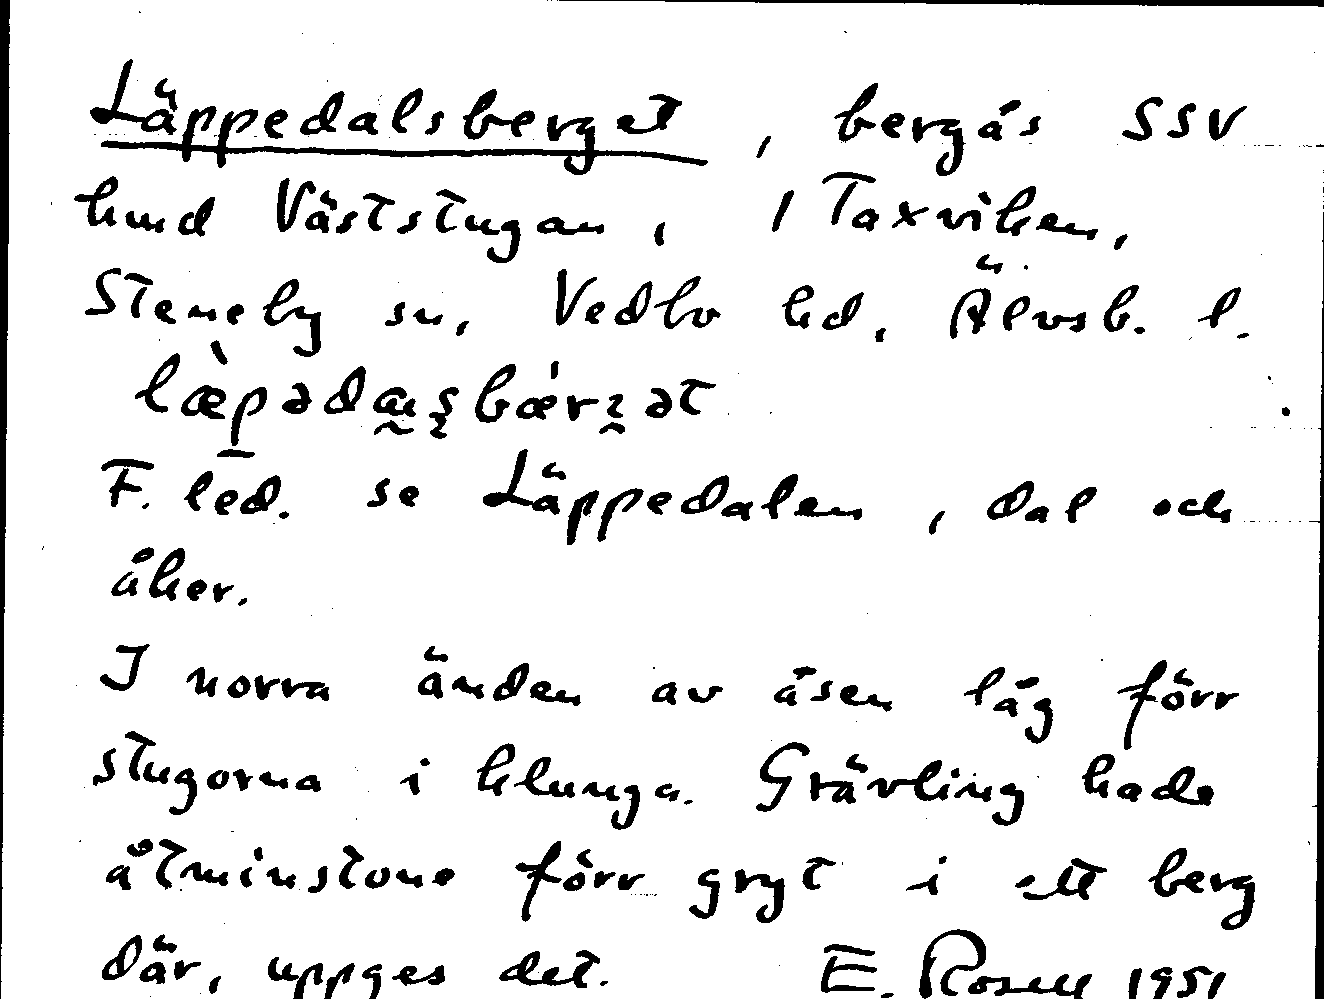 Läppedalsberget, bergås SSV
hmd Väststugan, 1 Taxviken,
Steneby sn, Vedbo hd, Älvsb. l.
F. led. se Läppedalen, dal och
åker.
I norra änden av åsen låg förr
stugorna i klunga. Grävling hade
åtminstone förr gryt i ett berg
där, uppges det. E. Rosell 1951